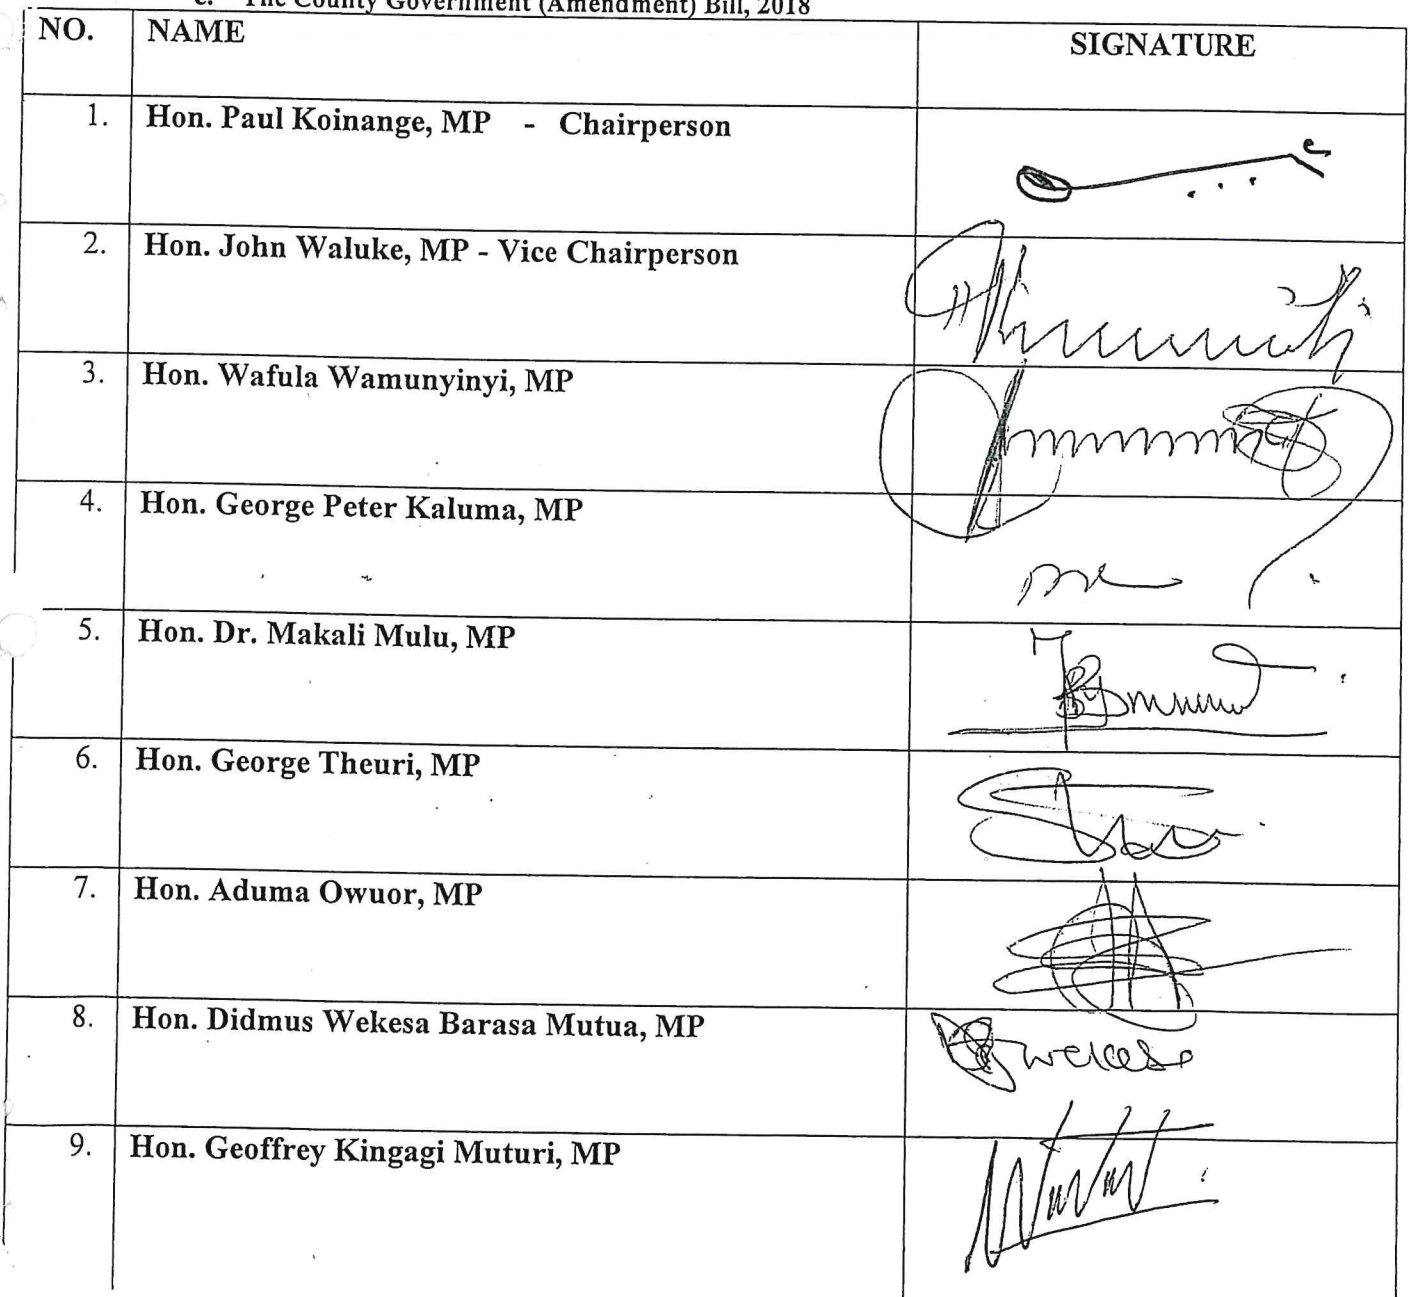 c. The County Government (Amendment) Bill, 2018
NO. NAME SIGNATURE
1. Hon. Paul Koinange, MP - Chairperson
2. Hon. John Waluke, MP - Vice Chairperson
3. Hon. Wafula Wamunyinyi, MP
4. Hon. George Peter Kaluma, MP
5. Hon. Dr. Makali Mulu, MP
6. Hon. George Theuri, MP
7. Hon. Aduma Owuor, MP
8. Hon. Didmus Wekesa Barasa Mutua, MP
wekesa
9. Hon. Geoffrey Kingagi Muturi, MP